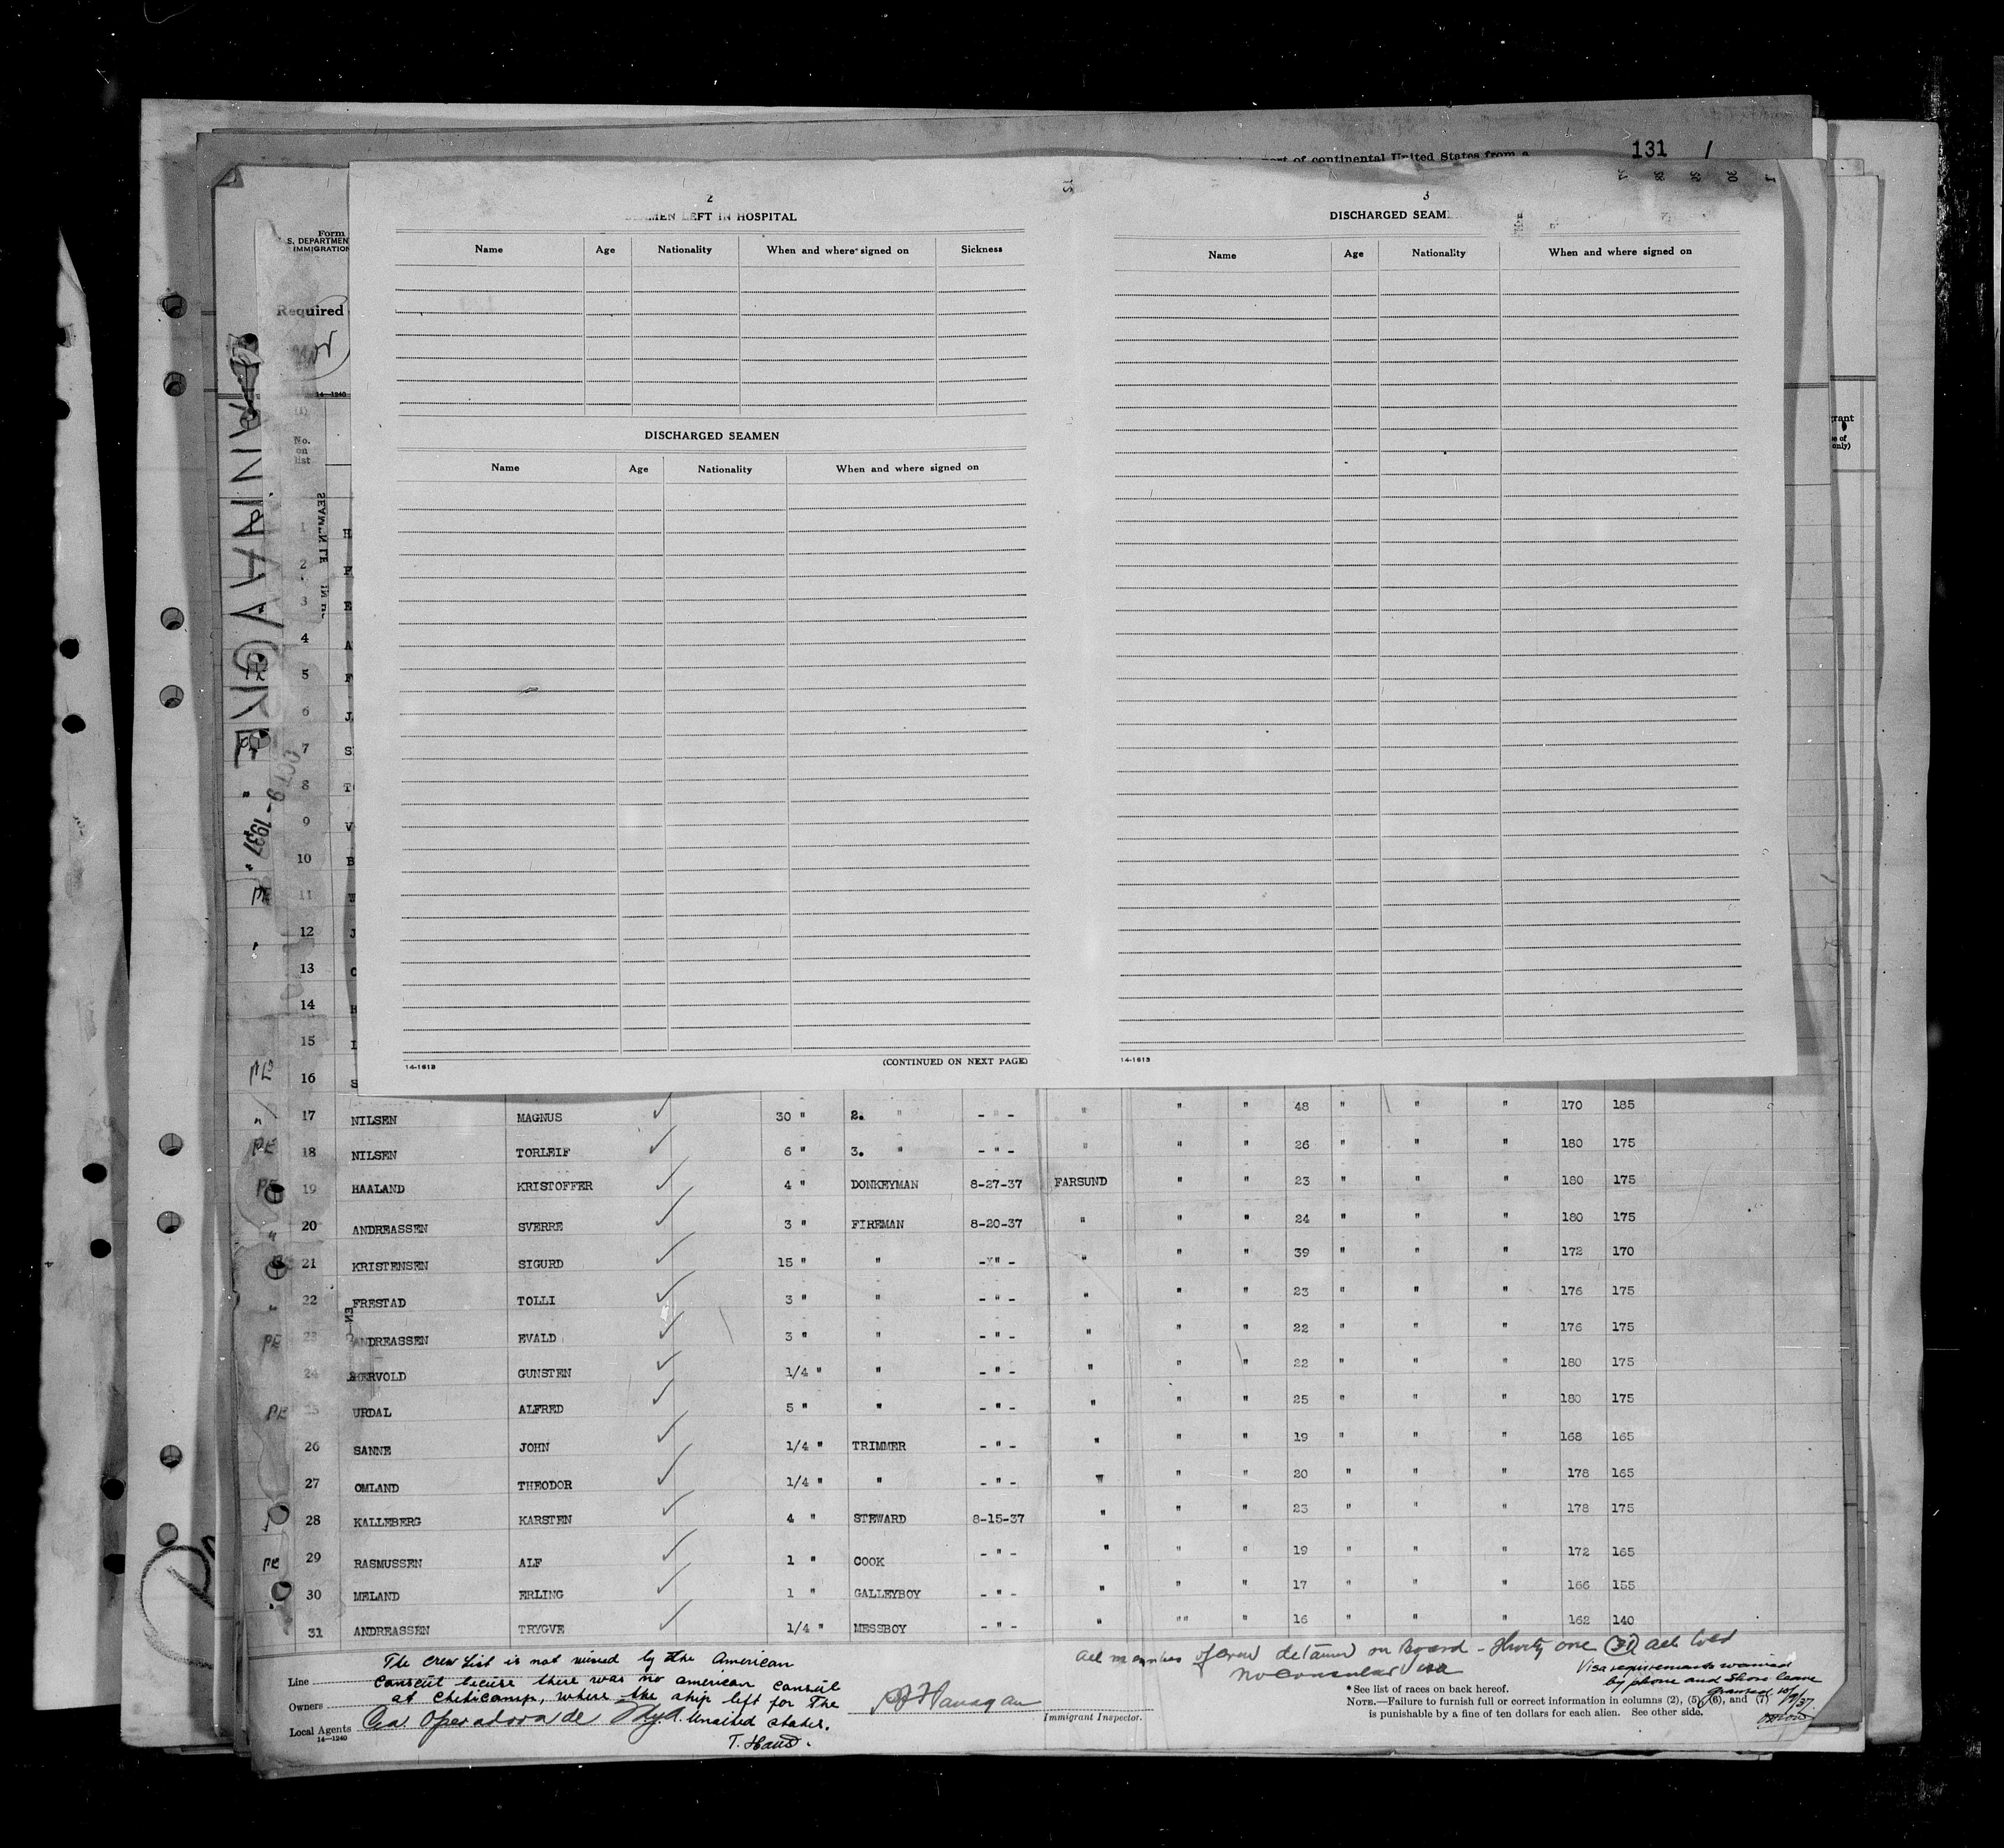 131 /
port of continental United States from a
2
LEFT IN HOSPITAL
Name Age Nationality When and where signed on Sickness
DISCHARGED SEAMEN
Name Age Nationality When and where signed on
(CONTINUED ON NEXT PAGE)
14-1613
3
DISCHARGED SEAM
Name Age Nationality When and where signed on
14-1613
Form
S. DEPARTMENT
IMMIGRATION
Required
14—1240
(1)
No.
on
list
OCT 9-1937
grant
only)
1 H
2 F
3 E
4 A
5 F
6 J
7 S
8 T
9 V
10 B
PE 11 W
" 12 J
13 C
14 H
15 I
PE 16 S
" 17 NILSEN MAGNUS ✓ 30 " 2. " - " - " " " 48 " " " 170 185
PE 18 NILSEN TORLEIF ✓ 6 " 3. " - " - " " " 26 " " " 180 175
PE 19 HAALAND KRISTOFFER ✓ 4 " DONKEYMAN 8-27-37 FARSUND " " 23 " " " 180 175
" 20 ANDREASSEN SVERRE ✓ 3 " FIREMAN 8-20-37 " " " 24 " " " 180 175
21 KRISTENSEN SIGURD ✓ 15 " " - " - " " " 39 " " " 172 170
" 22 FRESTAD TOLLI ✓ 3 " " - " - " " " 23 " " " 176 175
PE 23 ANDREASSEN EVALD ✓ 3 " " - " - " " " 22 " " " 176 175
24 GUNSTEN ✓ 1/4 " " - " - " " " 22 " " " 180 175
PE 25 URDAL ALFRED ✓ 5 " " - " - " " " 25 " " " 180 175
26 SANNE JOHN ✓ 1/4 " TRIMMER - " - " " " 19 " " " 168 165
27 OMLAND THEODOR ✓ 1/4 " " - " - " " " 20 " " " 178 165
28 KALLEBERG KARSTEN ✓ 4 " STEWARD 8-15-37 " " " 23 " " " 178 175
PE 29 RASMUSSEN ALF ✓ 1 " COOK - " - " " " 19 " " " 172 165
30 MELAND ERLING ✓ 1 " GALLEYBOY - " - " " " 17 " " " 166 155
31 ANDREASSEN TRYGVE ✓ 1/4 " MESSBOY - " - " "" " 16 " " " 162 140
The crew list is not visied by the American
Line consul becuse there was no american consul
Owners at Cheticamp, where the ship left for The
Local Agents Cia. Operadora de Unaited states.
14—1240
T. Haus.
Flanagan
Immigrant Inspector.
All members of crew detained on board - thirty one (31) all told
No Consular visa
Visa requirements waived
by phone and Shore leave
granted 10/9/37
*See list of races on back hereof.
NOTE.—Failure to furnish full or correct information in columns (2), (5), (6), and (7)
is punishable by a fine of ten dollars for each alien. See other side.